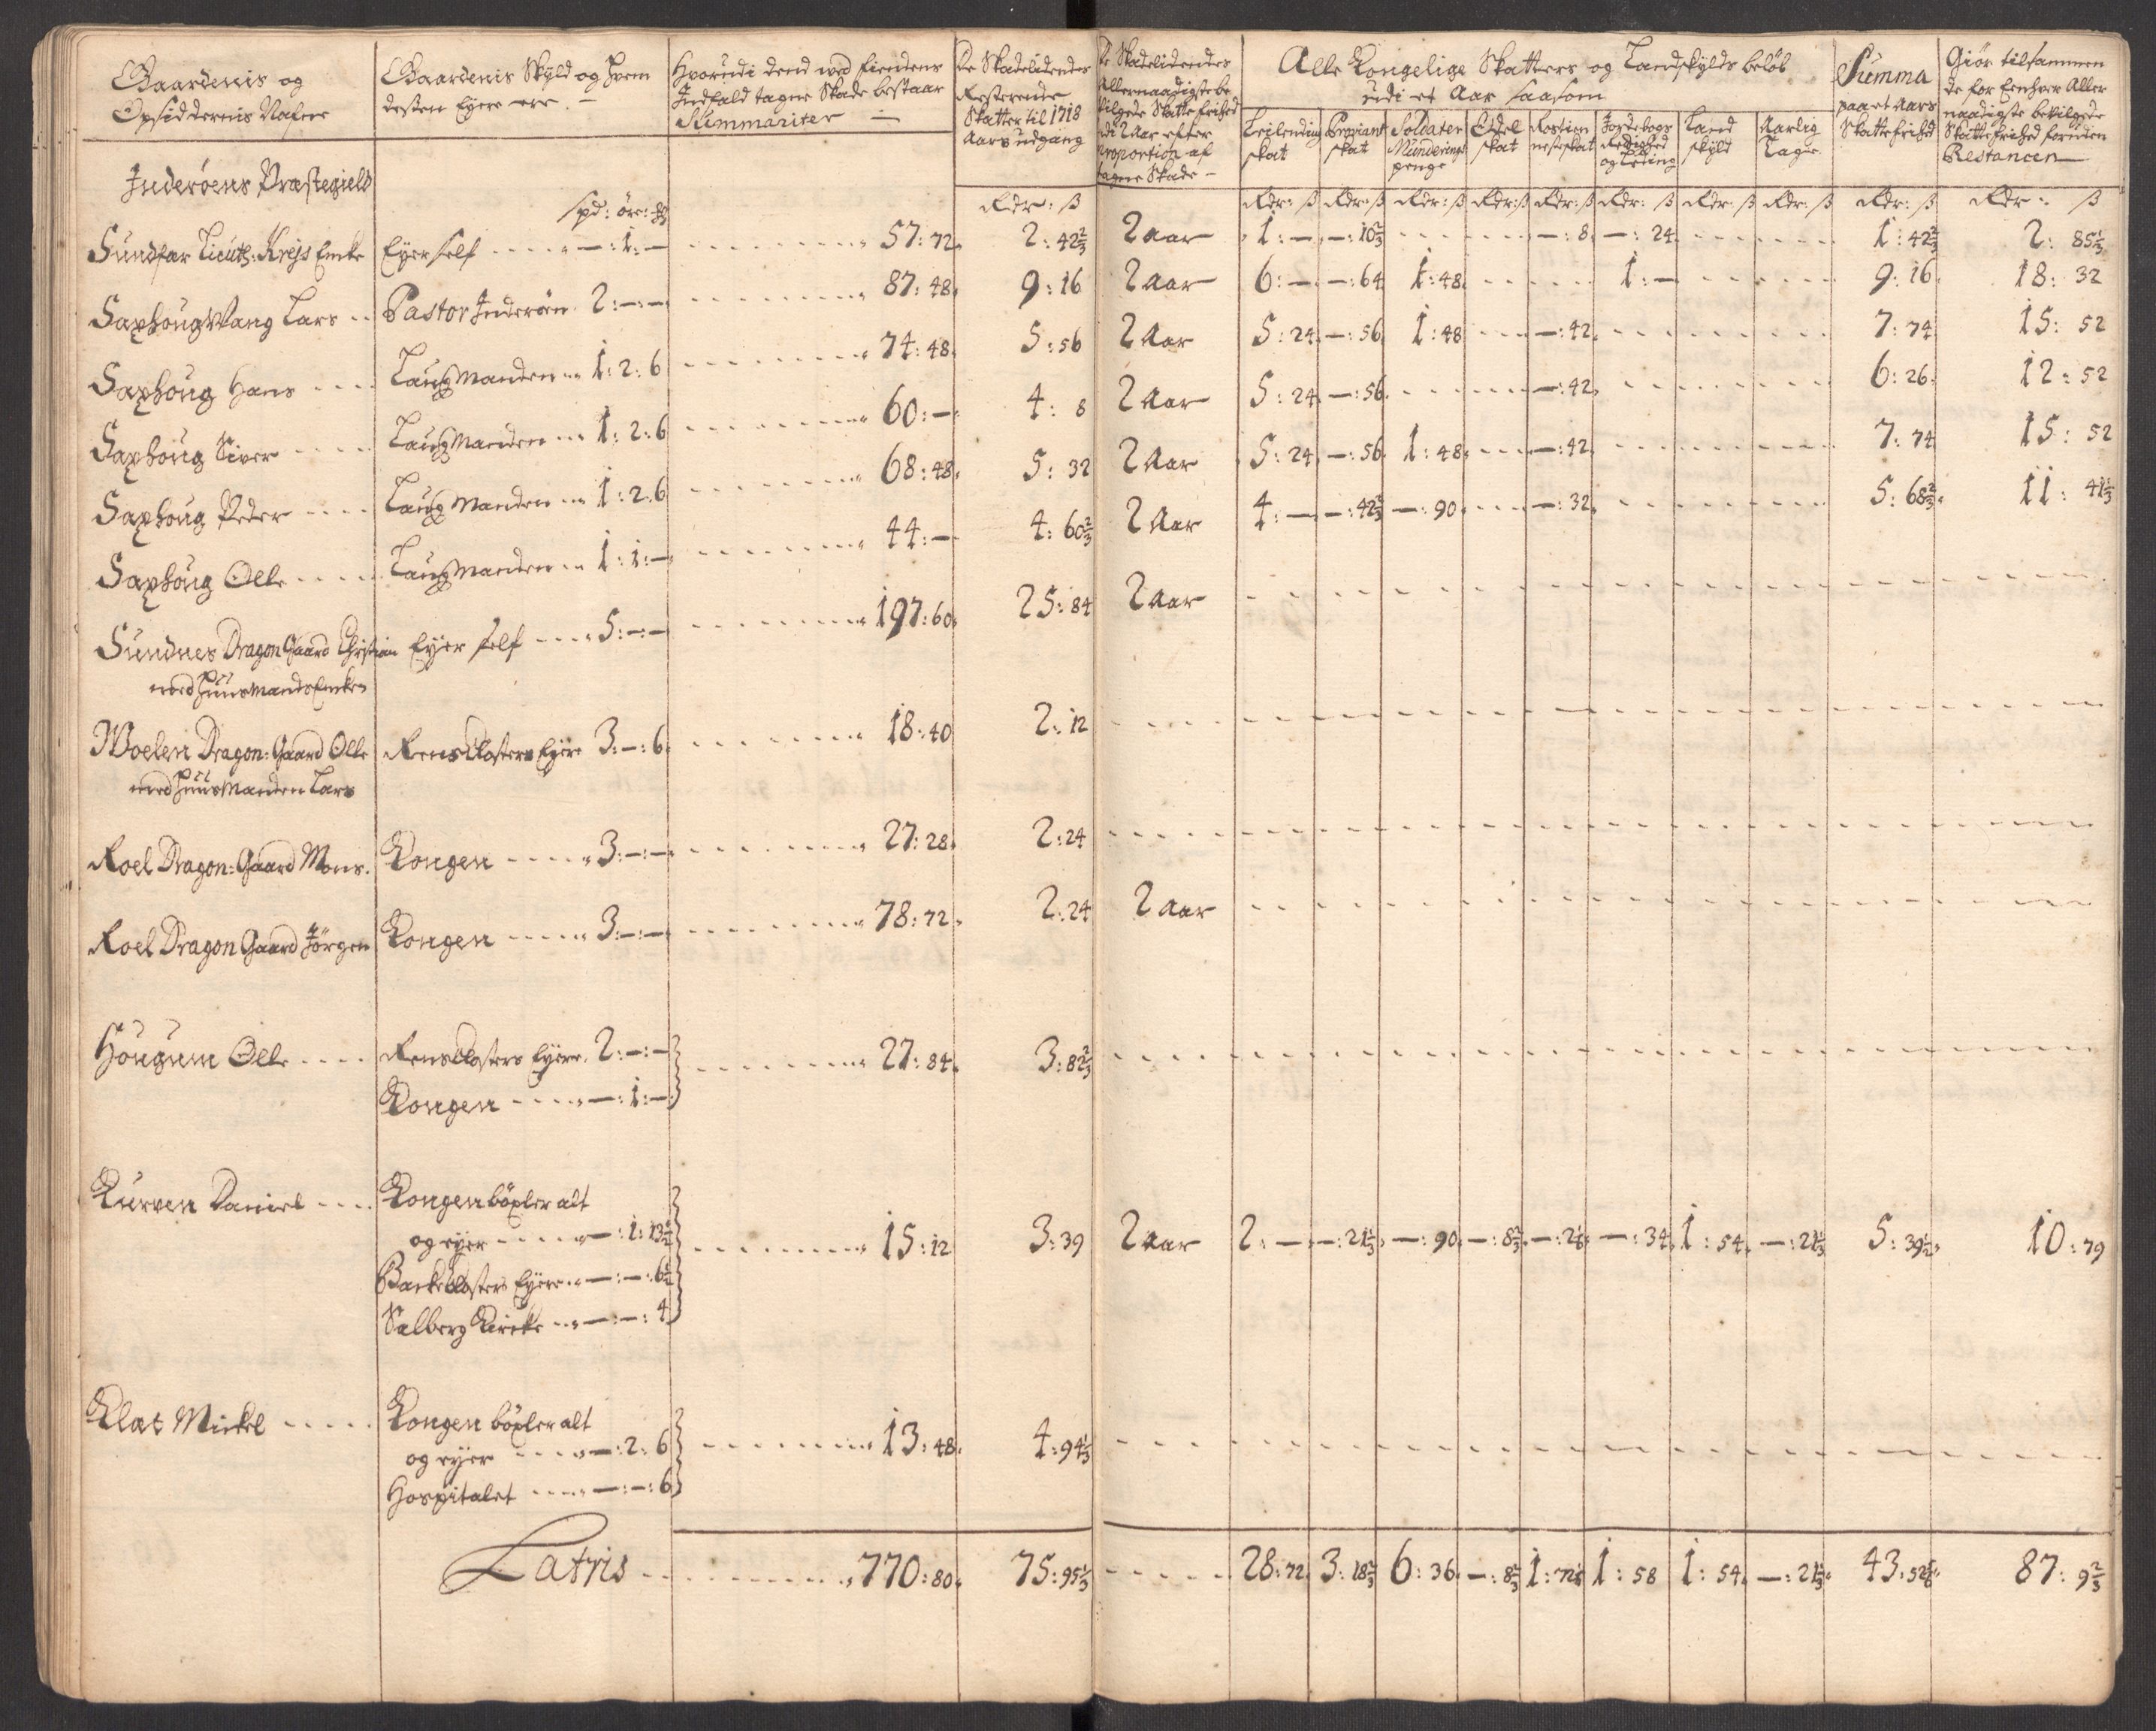 Gaardenis og
Opsiddernis Nafne
Gaardenis Skyld og Hvem
desten Eyere ere. —
Hvorudi dend ved fiendens
Indfald tagne Skade bestaar
Summariter —
De Skadelidendes
Resterende
Skatter til 1718
Aars udgang
De Skadelidendes
Allernaadigste be-
vilgede Skatte frihed
udi 2 Aar efter
proportion af
tagne Skade —
Alle Kongelige Skatters og Landskylds beløb
udi et Aar saasom
Leilending
skat
Proviant
skat
Soldater
Munderings
penge
Odel
skat
Rostien
nesteskat
Jordebogs
Rettighed
og Leding
Land
skyld
Aarlig
Tagie
Summa
paa et Aars
Skattefrihed
Giør tilsammen
de for Eenhver Aller
naadigste bevilgede
Skattefrihed foruden
Restancen
Inderøens Præstegield
spd: öre: ₰
Rdr: ß
Rdr: ß Rdr: ß Rdr: ß Rdr: ß Rdr: ß Rdr: ß Rdr: ß Rdr: ß Rdr: ß Rdr: ß
Sundfær Lieut: Krejs Encke Eyer self — : 1 : — 57 : 72 2 : 42 2/3 2 Aar 1 : — — : 10 2/3 — : 8 — : 24 1 : 42 2/3 2 : 85 1/3
Saxhoug Wang Lars Pastor Inderøen 2 : — : — 87 : 48 9 : 16 2 Aar 6 : — — : 64 1 : 48 1 : — 9 : 16 18 : 32
Saxhoug Hans Laugmanden 1 : 2 : 6 74 : 48 5 : 56 2 Aar 5 : 24 — : 56 1 : 48 — : 42 7 : 74 15 : 52
Saxhoug Siver Laugmanden 1 : 2 : 6 60 : — 4 : 8 2 Aar 5 : 24 — : 56 — : 42 6 : 26 12 : 52
Saxhoug Peder Laugmanden 1 : 2 : 6 68 : 48 5 : 32 2 Aar 5 : 24 — : 56 1 : 48 — : 42 7 : 74 15 : 52
Saxhoug Olle Laugmanden 1 : 1 : — 44 : — 4 : 60 2/3 2 Aar 4 : — — : 42 2/3 — : 90 — : 32 5 : 68 2/3 11 : 41 1/3
Sundnes Dragon Gaard Christian Eyer self 5 : — : — 197 : 60 25 : 84 2 Aar
med Huusmands Encken
Woelen Dragon: Gaard Olle Rens Closters Eyere 3 : — : 6 18 : 40 2 : 12
med Huusmanden Lars
Roel Dragon: Gaard Mons. Kongen 3 : — : — 27 : 28 2 : 24
Roel Dragon Gaard Jørgen Kongen 3 : — : — 78 : 72 2 : 24 2 Aar
Hougum Olle Rens Closters Eyere 2 : — : — 27 : 84 3 : 82 2/3
Kongen — : 1 : —
Kurven Daniel Kongen böxler alt
og eyer — : 1 : 13 1/2 15 : 12 3 : 39 2 Aar 2 : — — : 21 1/3 — : 90 — : 8 2/3 — : 2 1/6 — : 34 1 : 54 — : 21 1/3 5 : 39 1/2 10 : 79
Backe Closters Eyere — : — : 6 1/2
Salberg Kircke — : — : 4
Klæt Mickel Kongen böxler alt
og eyer — : 2 : 6 13 : 48 4 : 94 1/3
Hospitalet — : — : 6
Latris 770 : 80 75 : 95 1/3 28 : 72 3 : 18 2/3 6 : 36 — : 8 2/3 1 : 72 1/6 1 : 58 1 : 54 — : 21 1/3 43 : 52 5/6 87 : 9 2/3